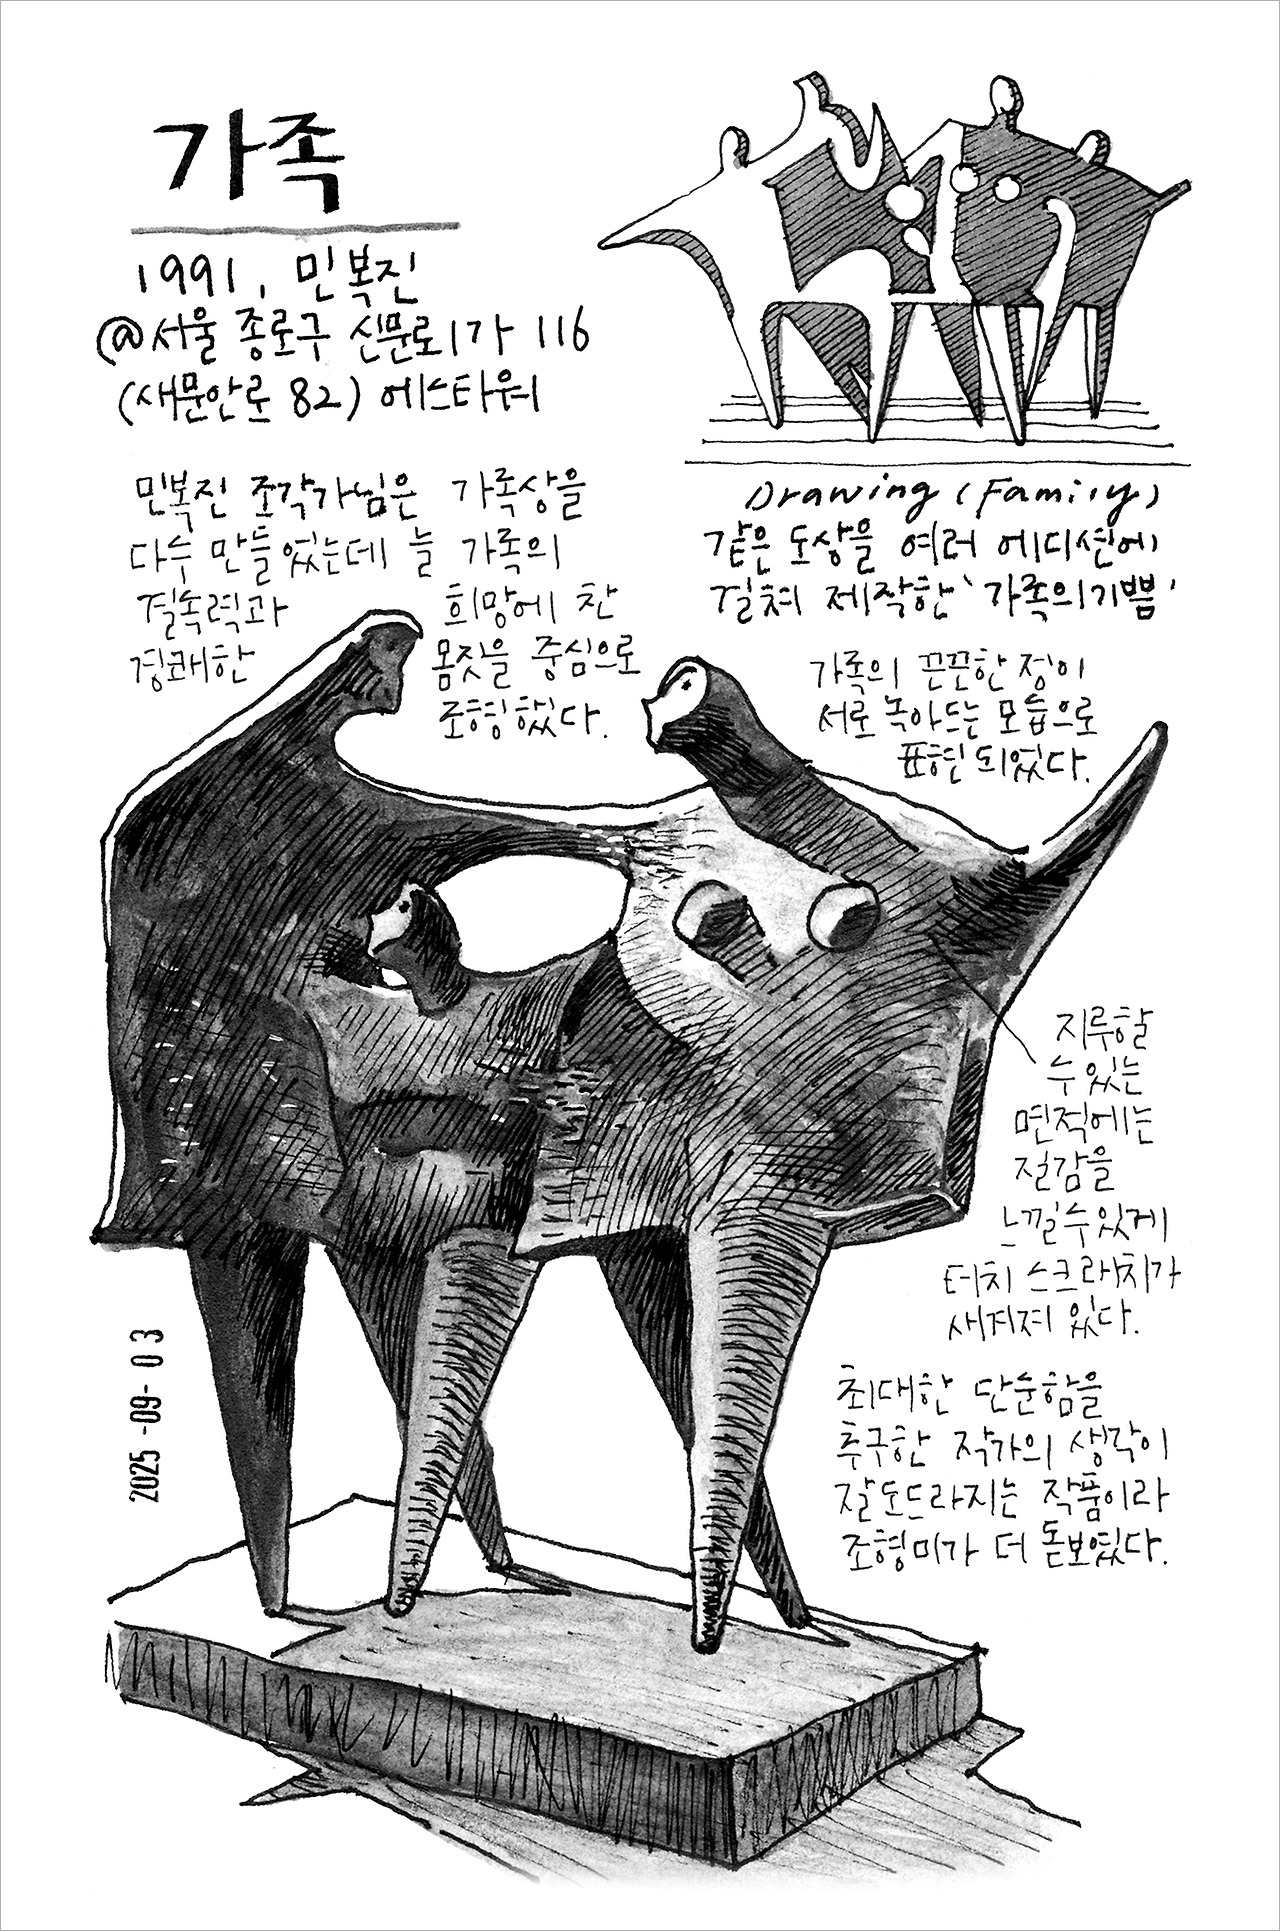 가족
1991, 민복진
@서울 종로구 신문로1가 116
(새문안로 82) 에스타워
민복진 조각가님은 가족상을
다수 만들었는데 늘 가족의
결속력과 희망에 찬
경쾌한 몸짓을 중심으로
조형했다.
Drawing (Family)
같은 도상을 여러 에디션에
걸쳐 제작한 '가족의 기쁨'
가족의 끈끈한 정이
서로 녹아드는 모습으로
표현 되었다.
지루할
수 있는
면적에는
질감을
느낄 수 있게
터치 스크래치가
새겨져 있다.
최대한 단순함을
추구한 작가의 생각이
잘 도드라지는 작품이라
조형미가 더 돋보였다.
2025 -09- 03